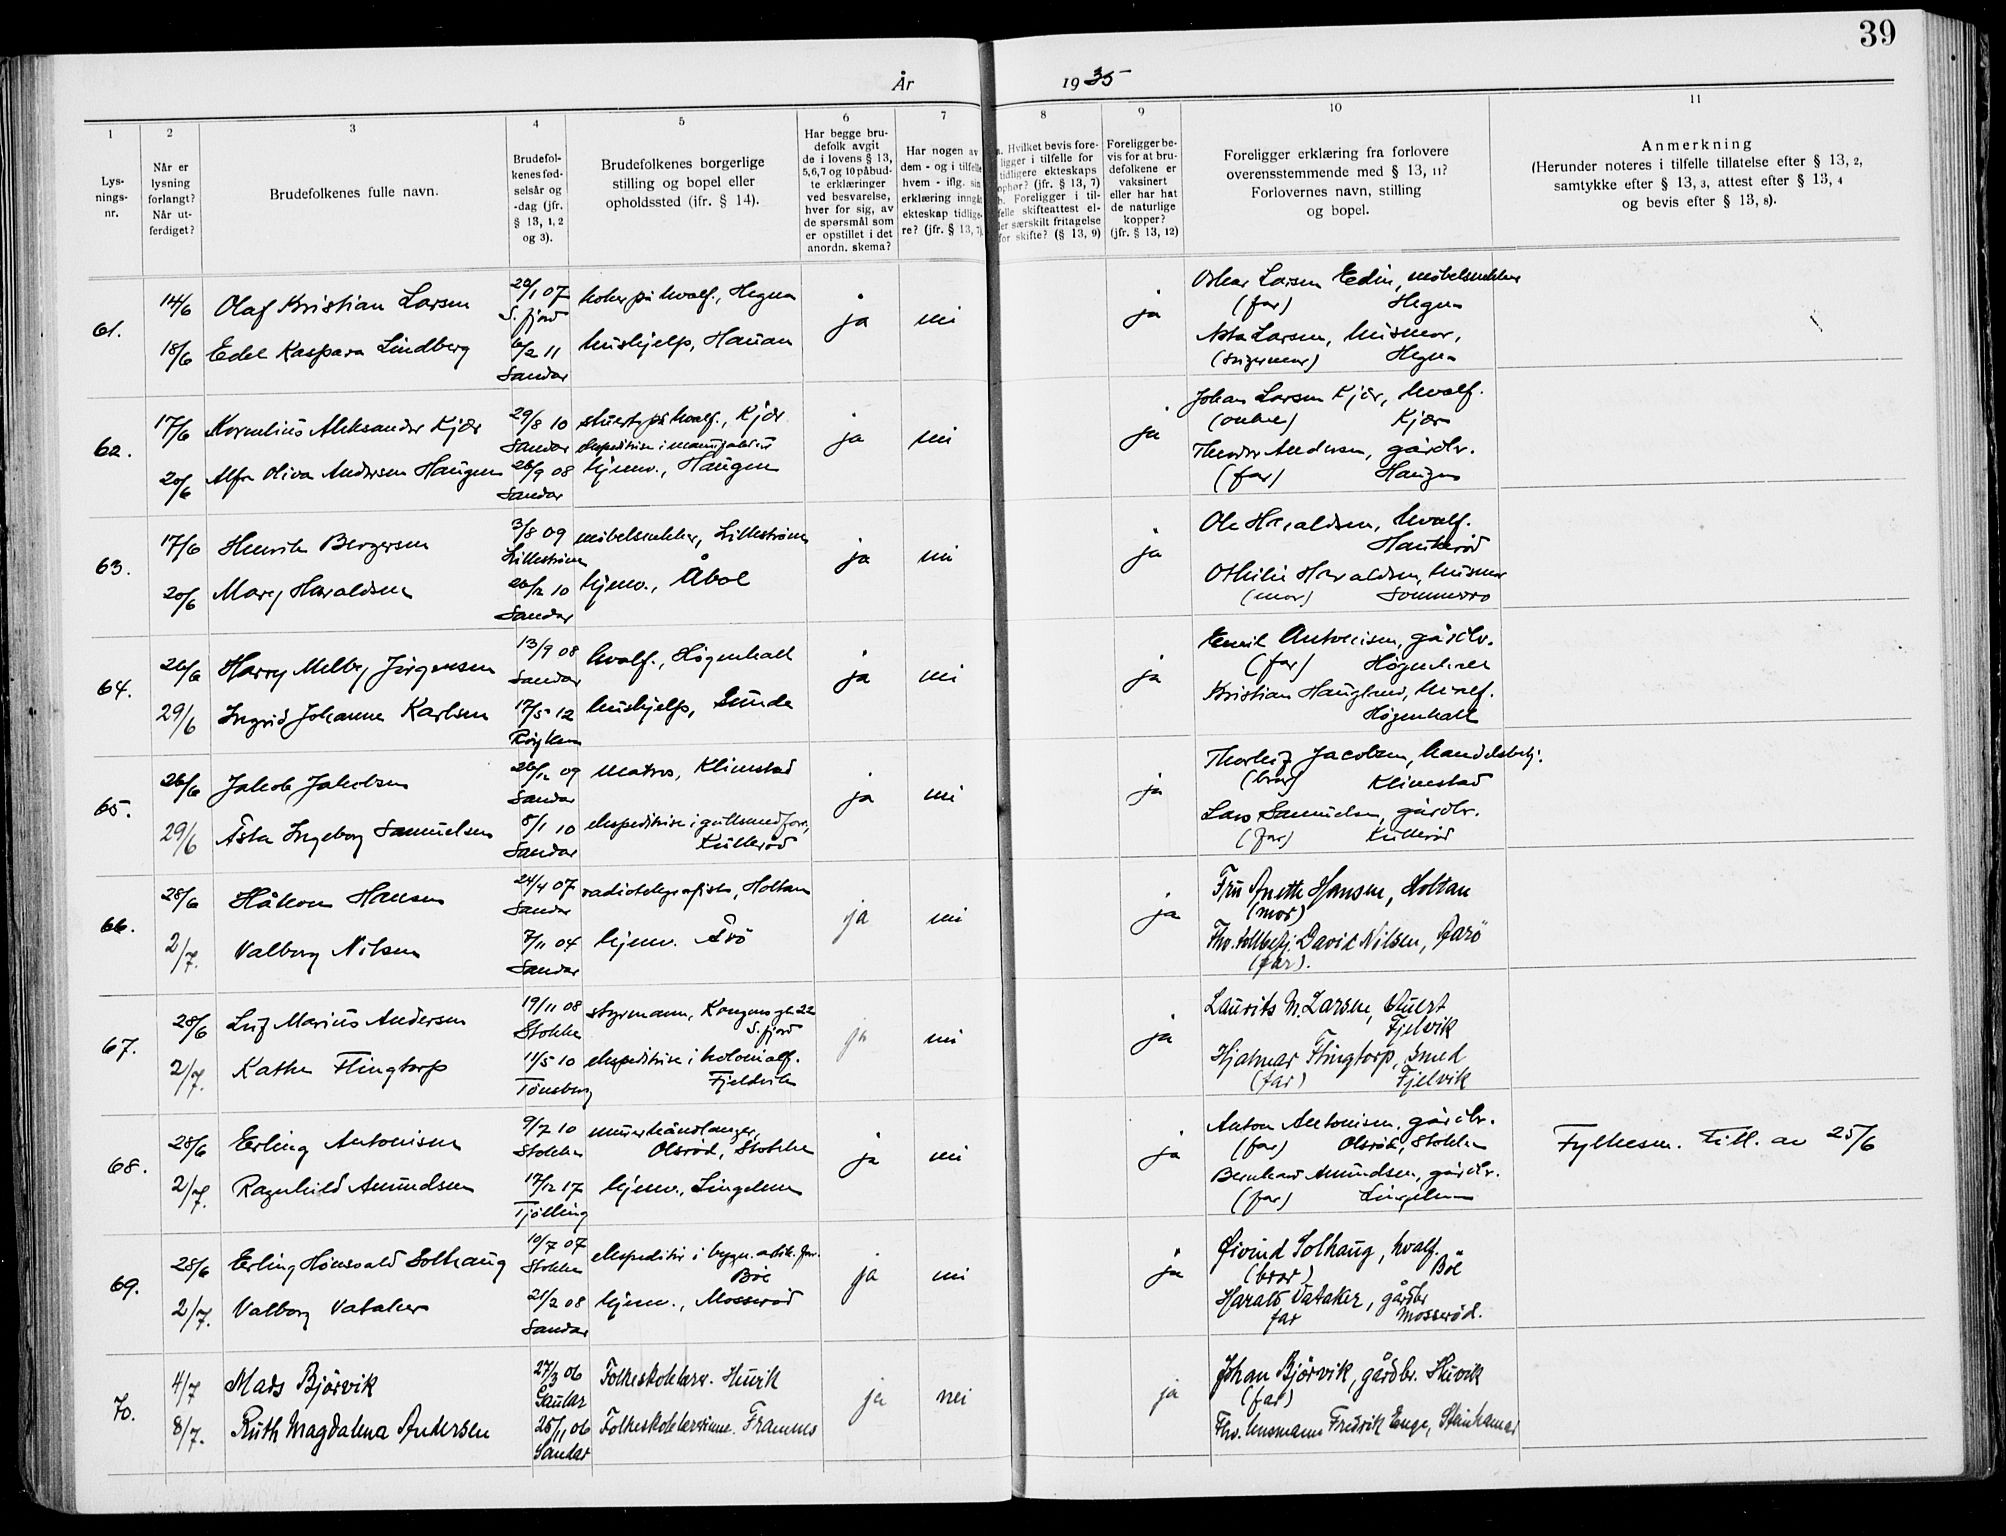 39
År 1935
1 2 3 4 5 6 7 8 9 10 11
Lys-
nings-
nr.
Når er
lysning
forlangt?
Når ut-
ferdiget?
Brudefolkenes fulle navn.
Brudefol-
kenes fød-
selsår og
-dag (jfr.
§ 13, 1, 2
og 3).
Brudefolkenes borgerlige
stilling og bopel eller
opholdssted (jfr. § 14).
Har begge bru-
defolk avgit
de i lovens § 13,
5, 6, 7 og 10 påbud-
te erklæringer
ved besvarelse,
hver for sig, av
de spørsmål som
er opstillet i det
anordn. skema?
Har nogen av
dem - og i tilfelle
hvem - iflg. sin
erklæring inngåt
ekteskap tidlige-
re? (jfr. § 13, 7)
a. Hvilket bevis fore-
ligger i tilfelle for
tidligere ekteskaps
ophør? (jfr. § 13, 7)
b. Foreligger i til-
felle skifteattest el-
ler særskilt fritagelse
for skifte? (§ 13, 9)
Foreligger be-
vis for at bru-
defolkene er
vaksinert
eller har hat
de naturlige
kopper?
(jfr. § 13, 12)
Foreligger erklæring fra forlovere
overensstemmende med § 13, 11?
Forlovernes navn, stilling
og bopel.
Anmerkning
(Herunder noteres i tilfelle tillatelse efter § 13, 2,
samtykke efter § 13, 3, attest efter § 13, 4
og bevis efter § 13, 8).
61. 14/6 Olaf Kristian Larsen 07 S.fjord koker på hvalf., Hegna ja nei ja Oskar Larsen Edin, møbelsnekker
(far) Hegna
18/6 Edel Kaspara Lindberg 6/2 11 Sandar hushjelp, Hauan Larsen, husmor,
(svigermor) Hegna
62. 17/6 Kornelius Aleksander Kjær 29/8 10 Sandar stuert på hvalf., Kjær ja nei ja Johan Larsen Kjær, hvalf.
(onkel) Kjær
20/6 Alfa Oliva Andersen Haugen 26/9 08 Sandar ekspeditrise i manufakt.
hjemv., Haugen Theodor Andersen, gårdbr.
(far) Haugen
63. 17/6 Henrik Bergersen 3/8 09 Lillestrøm møbelsnekker, Lillestrøm ja nei ja Ole Haraldsen, hvalf.
Haukerød
20/6 Mary Haraldsen 10 Sandar hjemv., Åbol Othilie Haraldsen, husmor
(mor) Sommerro
64. 26/6 Harry Melby Jørgensen 13/9 08 Sandar hvalf., Høgenhall ja nei ja Emil Antonisen, gårdbr.
(far) Høgenhall
29/6 Ingrid Johanne Karlsen 17/5 12 Røyken hushjelp, Sunde Kristian Haugland, hvalf.
Høgenhall
65. 26/6 Jakob Jakobsen 26/12 09 Sandar matros, Klinestad ja nei ja Thorleif Jacobsen, handelsbetj.
(bror) Klinestad
29/6 Åsta Ingeborg Samuelsen 8/1 10 Sandar ekspeditrise i gullsmedforr.,
Kullerød Lars Samuelsen, gårdbr.
(far) Kullerød
66. 28/6 Håkon Hansen 24/4 07 Sandar radiotelegrafist, Holtan ja nei ja Fru Anette Hansen, Holtan
(mor)
2/7. Valborg Nilsen 7/11 04 Sandar hjemv. Årø Fhv. tollbetj. David Nilsen, Aarö
(far).
67. 28/6 Leif Marius Andersen 19/11 08 Stokke styrmann, Kongens gt. 22
S.fjord ja nei ja Laurits M. Larsen, stuert
Fjelvik
2/7. Kathe Flingtorp 11/5 10 Tønsberg ekspeditrise i kolonialf.
Fjeldvik Hjalmar Flingtorp, smed
(far) Fjelvik
68. 28/6 Erling Antonisen 9/7 10 Stokke murerhåndlanger,
Olsrød, Stokke ja nei ja Anton Antonisen, gårdbr.
(far) Olsrød, Stokke
Fylkesm. till. av 25/6
2/7. Ragnhild Amundsen 17/12 17 Tjølling hjemv., Lingelem Bernhard Amundsen, gårdbr.
(far) Lingelem
69. 28/6 Erling Hønsvald Solhaug 10/7 07 Stokke ekspeditør i bygn.artik.forr.
Bøe ja nei ja Øivind Solhaug, hvalf.
(bror) Böe
2/7. Valborg Vataker 21/2 08 Sandar hjemv., Mosserød Harald Vataker, gårdbr
far Mosserød.
70. 4/7 Mads Björvik 27/3 06 Gaular Folkeskolelærer. Huvik ja nei ja Johan Björvik, gårdbr. Huvik
(far)
8/7. Ruth Magdalena Andersen 25/11 06 Sandar Folkeskolelærerinne. Framnes Fhv. lensmann Fredrik Enge, Steinhamar